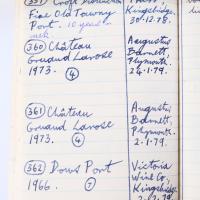 Fine Old Tawny
Port. 10 years in
Kingsbridge.
30.12.78.
360 Château
Gruaud Larose
1973. 4
Augustus
Barnett,
Plymouth.
24.1.79.
361 Château
Gruaud Larose
1973. 4
Augustus
Barnett,
Plymouth.
2.1.79.
362 Dows Port
1966. 7
Victoria
Wine Co,
Kingsbridge
2.1.79.